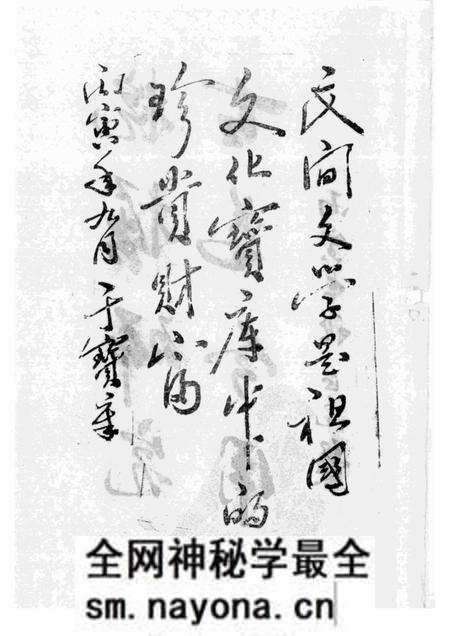 民间文学是祖國
文化寶库中的
珍貴財富
丙寅年九月 于寶章
全网神秘学最全
sm.nayona.cn